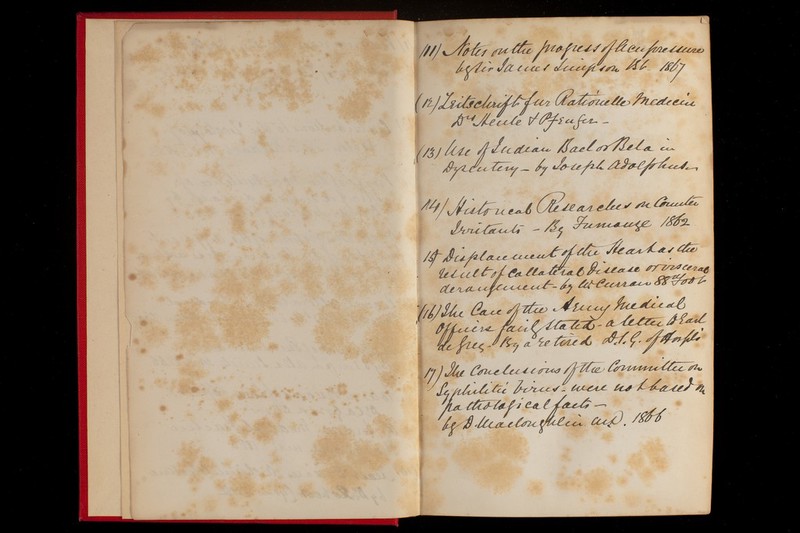 (11) Notes on the progress of Acupressure
by Sir James Simpson Bt. 1867
(12) Zeitschrift fur Rationelle Medecin
Drs Henle & Pfeufer -
(13) Use of Indian Bael or Bela in
Dysentery - by Joseph Adolphus
(14) Historical Researches on Counter
Irritants - By Fumouze 1862
15) Displacement of the Heart as the
result of Collateral Disease or visceral
derangement - by W Curran 88th Foot
(16) The Case of the Army Medical
Officers fairly Stated - a letter to Earl
de Grey - By a retired D.I.G. of Hospls
17) The Conclusions of the Committee on
Syphilitic Virus - were not based on
pathological facts -
by D Macloughlin M.D. 1866